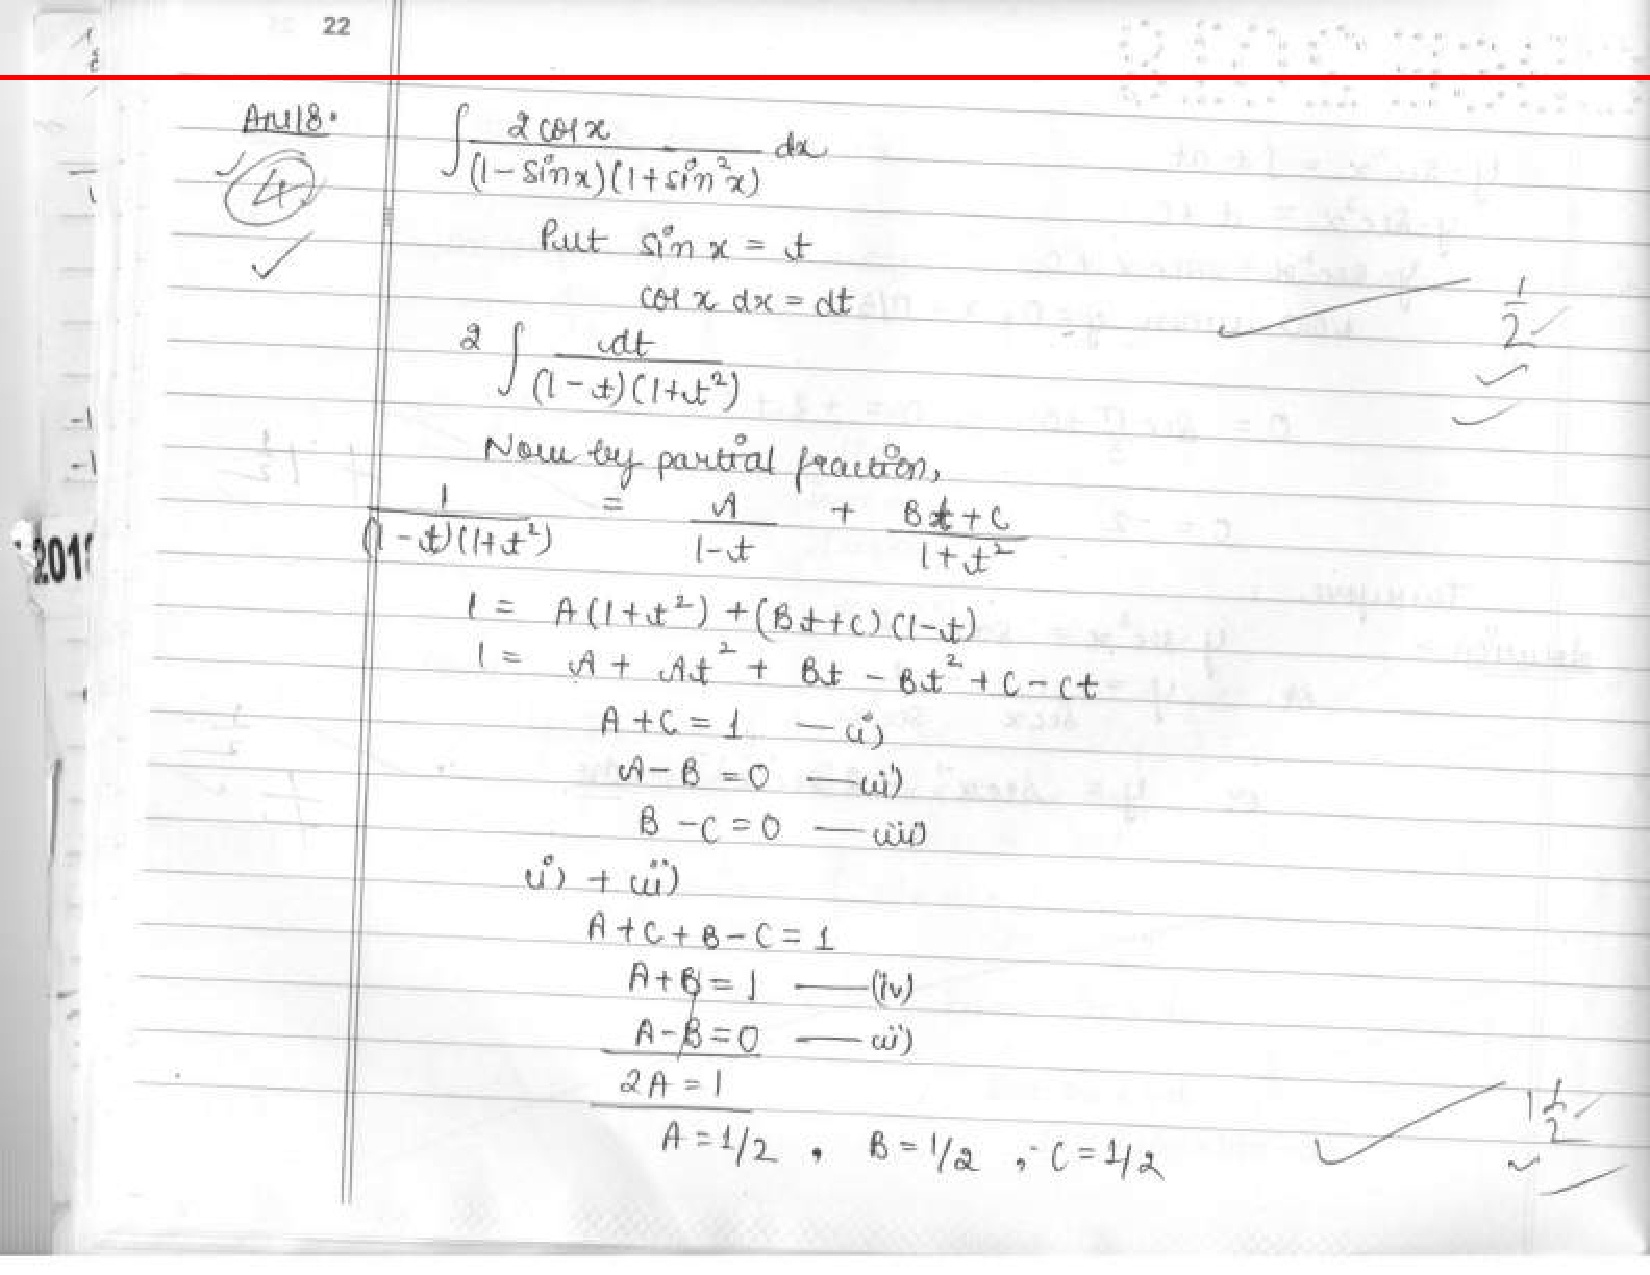 22
Ans18.
4
∫ 2cosx / (1-sinx)(1+sin²x) dx
Put sinx = t
cosx dx = dt
1/2
2 ∫ dt / (1-t)(1+t²)
Now by partial fraction,
1 / (1-t)(1+t²) = A / 1-t + Bt+C / 1+t²
2018
1 = A(1+t²) + (Bt+C)(1-t)
1 = A + At² + Bt - Bt² + C - Ct
A+C = 1 — i)
A-B = 0 — ii)
B-C = 0 — iii)
i) + iii)
A+C+B-C = 1
A+B = 1 — (iv)
A-B = 0 — ii)
2A = 1
A = 1/2 , B = 1/2 , C = 1/2
1 1/2